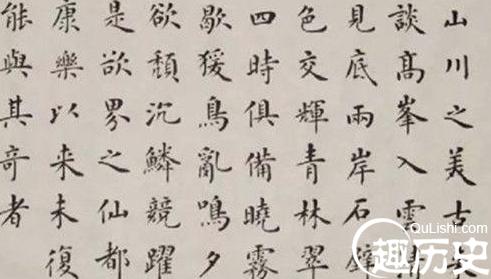 山川之美古
談高峯入雲
見底兩岸石
色交輝青林翠
四時俱備曉霧
歇猨鳥亂鳴夕
欲頹沉鱗競躍
是欲界之仙都
康樂以來未復
能與其奇者
QuLishi.com
趣历史